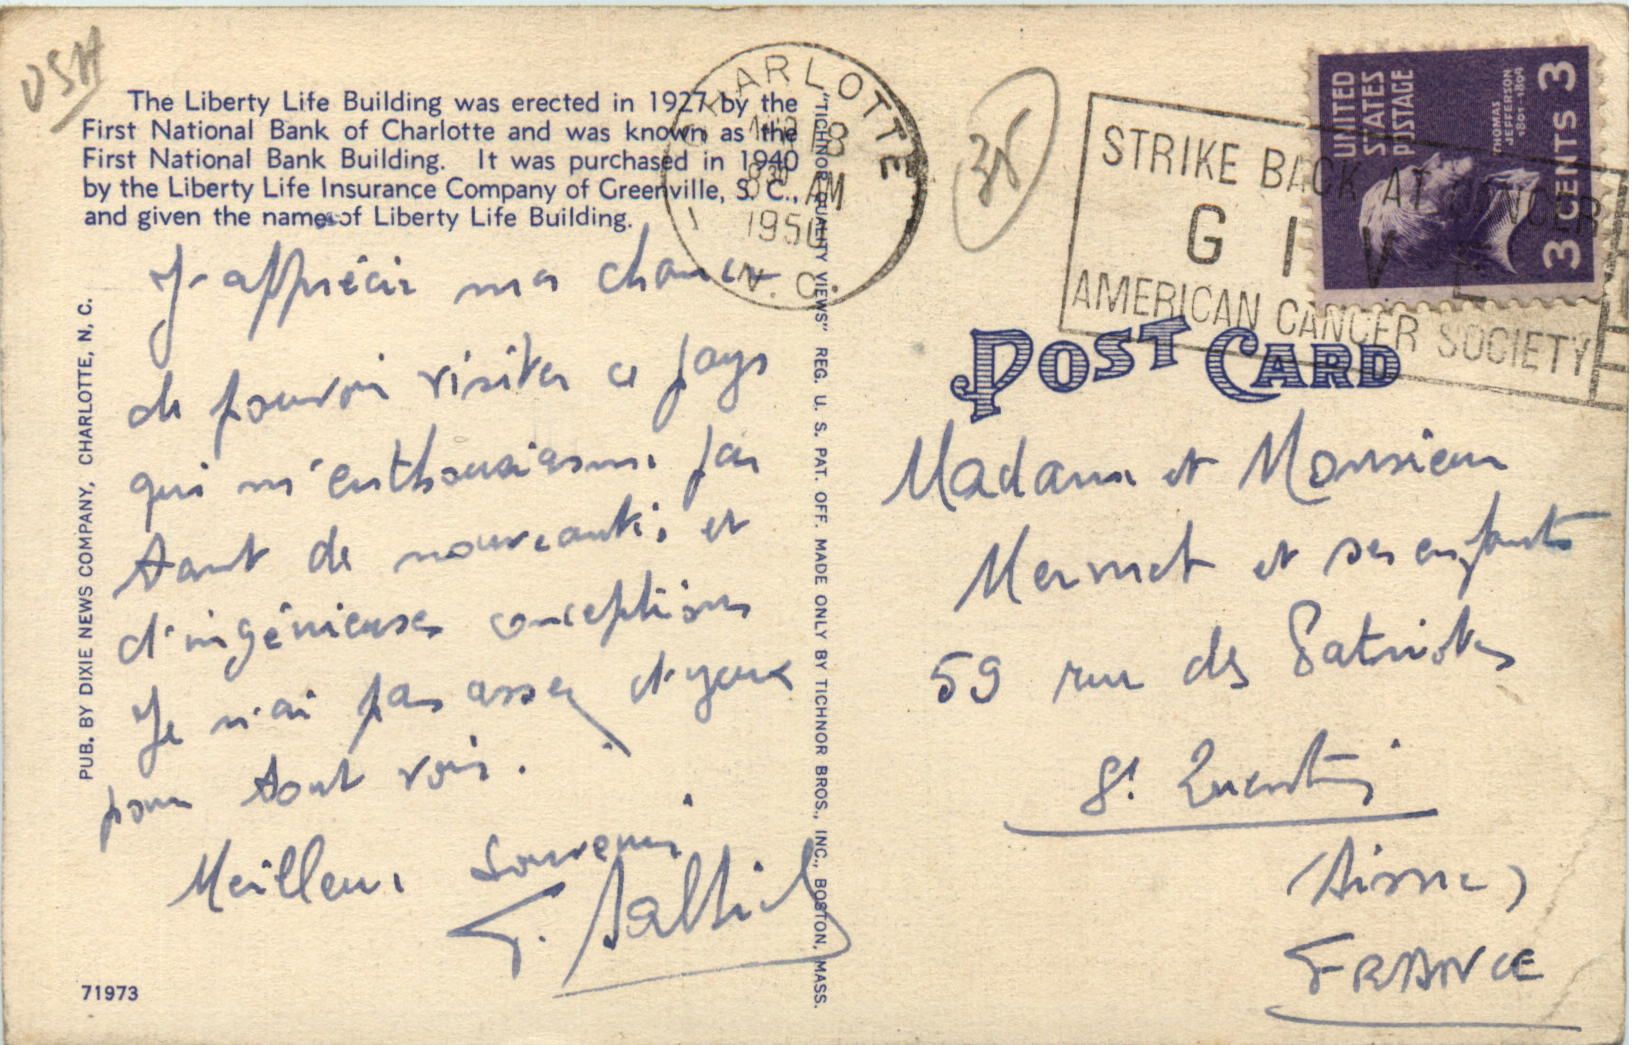 USA
The Liberty Life Building was erected in 1927 by the
First National Bank of Charlotte and was known as the
First National Bank Building. It was purchased in 1940
by the Liberty Life Insurance Company of Greenville, S. C.,
and given the name of Liberty Life Building.
J'apprécie ma chance
de pouvoir visiter ce pays
qui m'enthousiasme par
tant de nouveautés et
d'ingénieuses conceptions
Je n'ai pas assez d'yeux
pour tout voir.
Meilleur souvenir
PUB. BY DIXIE NEWS COMPANY, CHARLOTTE, N. C.
71973
"TICHNOR QUALITY VIEWS" REG. U. S. PAT. OFF. MADE ONLY BY TICHNOR BROS., INC., BOSTON, MASS.
CHARLOTTE
8
830 AM
1950
N. C.
STRIKE BACK AT CANCER
GIVE
AMERICAN CANCER SOCIETY
UNITED
STATES
POSTAGE
THOMAS
JEFFERSON
1801-1809
3 CENTS 3
POST CARD
Madame et Monsieur
Mermet et ses enfants
59 rue des Patriotes
St Quentin
(Aisne)
FRANCE